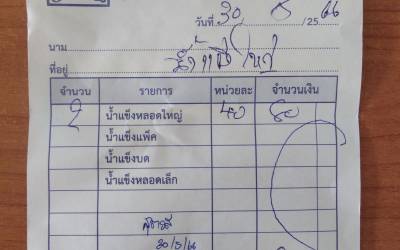 วันที่ 30 / 5 / 25 66
นาม
ที่อยู่
จำนวน รายการ หน่วยละ จำนวนเงิน
2 น้ำแข็งหลอดใหญ่ 40 80
น้ำแข็งแพ็ค
น้ำแข็งบด
น้ำแข็งหลอดเล็ก
30/5/66